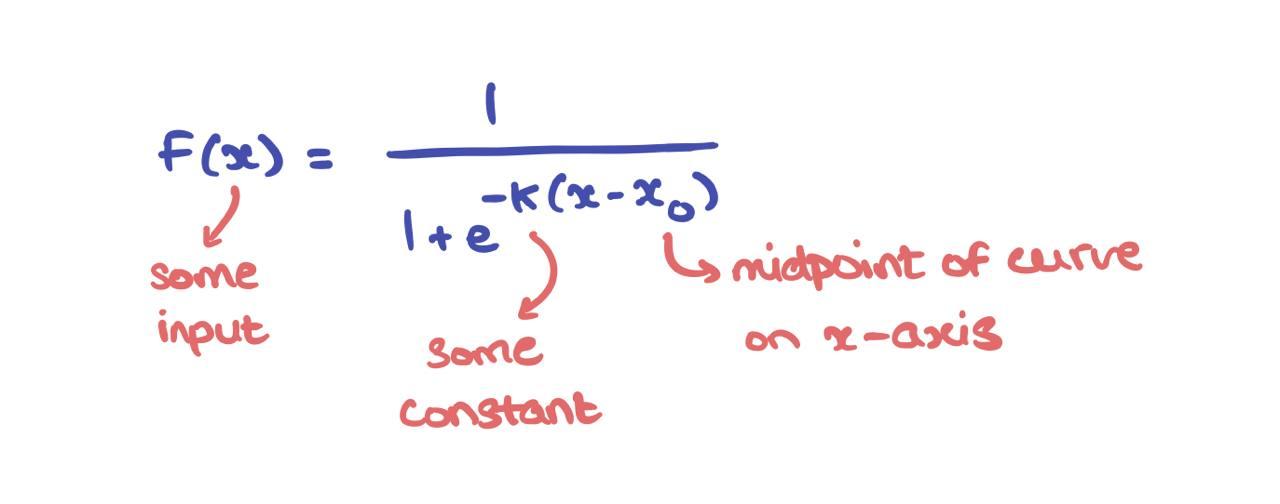 F(x) = 1
1 + e -k(x - x₀)
some
input
some
constant
midpoint of curve
on x-axis